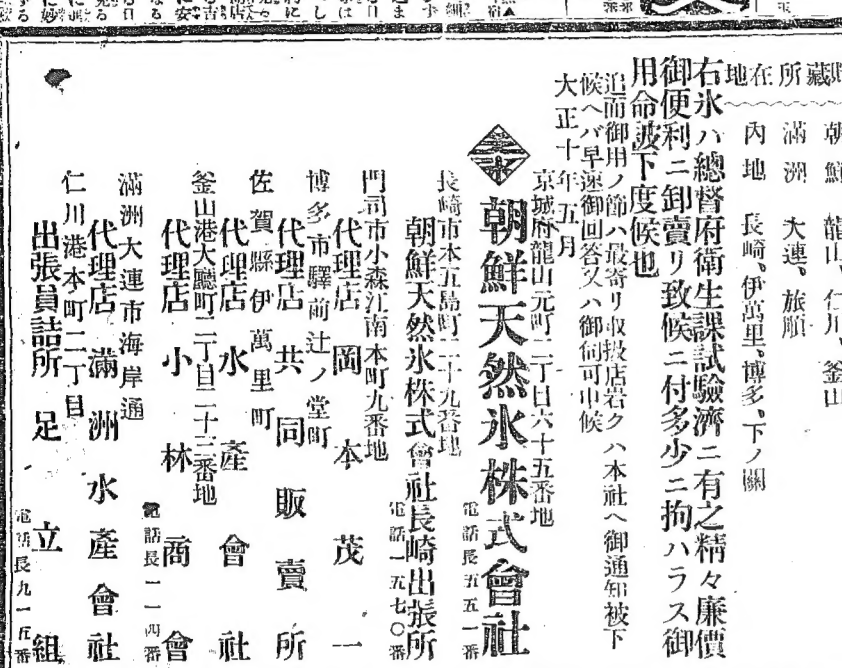 貯藏所在地
朝鮮 龍山、仁川、釜山
滿洲 大連、旅順
內地 長崎、伊萬里、博多、下ノ關
右氷ハ總督府衛生課試驗濟ニ有之精々廉價
御便利ニ卸賣リ致候ニ付多少ニ拘ハラス御
用命被下度候也
追而御用ノ節ハ最寄リ取扱店若クハ本社ヘ御通知被下
候ヘバ早速御回答又ハ御伺可申候
大正十年五月
京城府龍山元町二丁目六十五番地
朝鮮天然氷株式會社
電話長五五一番
長崎市本五島町二十九番地
朝鮮天然氷株式會社長崎出張所
電話一五七〇番
門司市小森江南本町九番地
代理店 岡本茂一
博多市驛前辻ノ堂町
代理店 共同販賣所
佐賀縣伊萬里町
代理店 水產會社
釜山港大廳町二丁目二十三番地
代理店 小林商會
電話長一一四番
滿洲大連市海岸通
代理店 滿洲水產會社
仁川港本町二丁目
出張員詰所 足立組
電話長九一五番